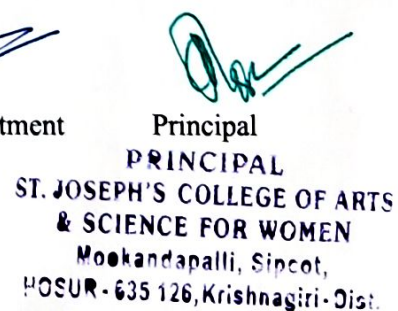 tment Principal
PRINCIPAL
ST. JOSEPH'S COLLEGE OF ARTS
& SCIENCE FOR WOMEN
Mookandapalli, Sipcot,
HOSUR - 635 126, Krishnagiri - Dist.